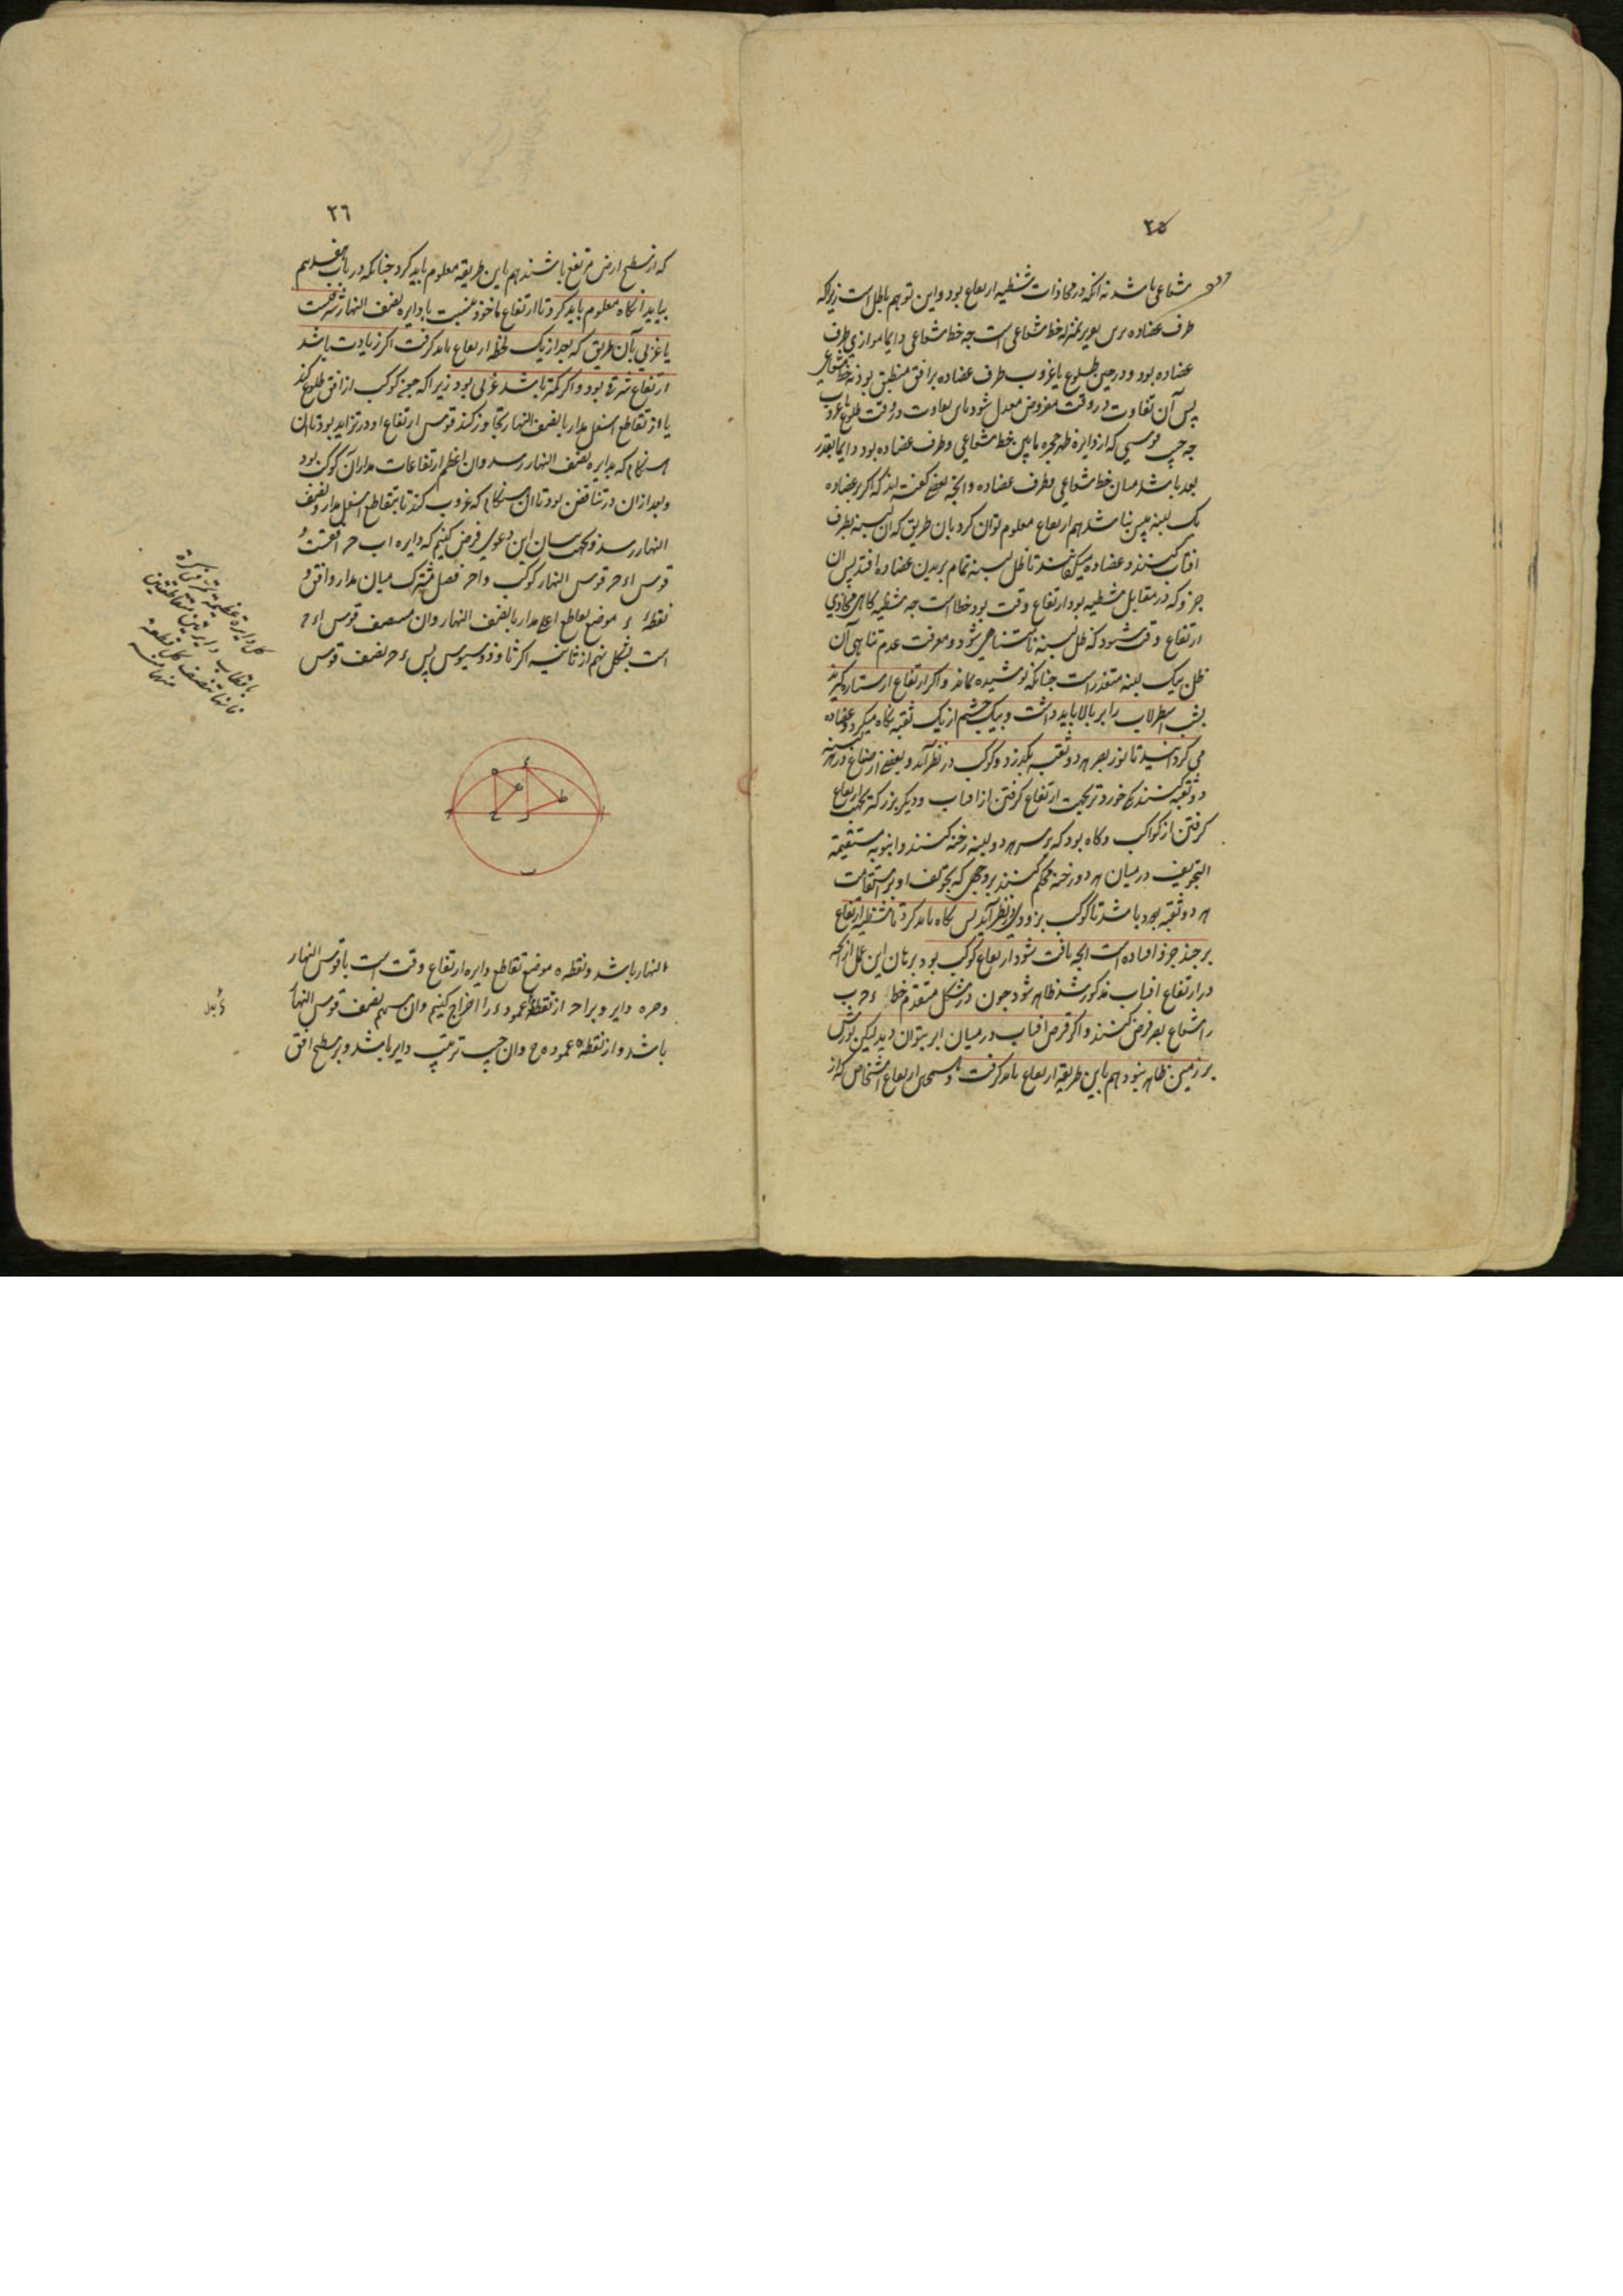 ۲۵
شعاعی باشد نه آنکه در محاذات شظیه ارتفاع بود و این توهم باطل است زیراکه
طرف عضاده بمنزله خط شعاعی است چه خط شعاعی دایما موازی طرف
عضاده بود و در حین طلوع یا غروب طرف عضاده بر افق منطبق بود نه خط شعاعی
پس آن تفاوت در وقت مفروض معدل شود بان تفاوت در وقت طلوع یا غروب
چه جیب قوسی که از دایره ظهر حجره مابین خط شعاعی و طرف عضاده بود دایما بقدر
بعد باشد میان خط شعاعی و طرف عضاده و انچه بعضی گفته اند که اگر بر عضاده
یک لبنه بیش نباشد هم ارتفاع معلوم توان کرد بان طریق که آن لبنه بطرف
افتاب کنند و عضاده میگردانند تا ظل لبنه تمام بر بدن عضاده افتد پس ان
جزو که در مقابل شظیه بود ارتفاع وقت بود خطاست چه شظیه گاهی محاذی
ارتفاع وقت شود که ظل لبنه نامتناهی شود و معرفت عدم تناهی آن
ظل بیک لبنه متعذر است چنانکه پوشیده نماند و اگر ارتفاع از ستاره گیرند
بشب اسطرلاب را بر بالا باید داشت و بیک چشم از یک ثقبه نگاه میکرد و عضاده
می گردانید تا نور بصر بهر دو ثقبه بگذرد و کوکب در نظر آید و بعضی از صناع در هر لبنه
دو ثقبه کنند یکی خوردتر بجهت ارتفاع گرفتن از افتاب و دیگر بزرگتر بجهت ارتفاع
گرفتن از کواکب و گاه بود که بر سر هر دو لبنه رخنه کنند و انبوبه مستقیمة
التجویف در میان هر دو رخنه محکم کنند بر وجهی که تجویف او بر استقامت
هر دو ثقبه بود باشد تا کوکب بزودی در نظر آید پس نگاه باید کرد تا شظیه ارتفاع
بر چند جزو افتاده است انچه یافت شود ارتفاع کوکب بود و برهان این عمل از انچه
در ارتفاع افتاب مذکور شد ظاهر شود چون در شکل متقدم خط ء ح ب
را شعاع بصر فرض کنند و اگر قرص افتاب در میان ابر بتوان دید لیکن نورش
بر زمین ظاهر نبود هم باین طریقه ارتفاع باید گرفت و همچنین ارتفاع اشخاص که از
۲٦
که از سطح ارض مرتفع باشند هم باین طریقه معلوم باید کرد چنانکه در باب هفدهم
بیاید انگاه معلوم باید کرد تا ارتفاع ماخوذ بنسبت با دایره نصف النهار شرقیست
یا غربی بآن طریق که بعد از یک لحظه ارتفاع باید گرفت اگر زیادت باشد
ارتفاع شرقی بود و اگر کمتر باشد غربی بود زیراکه چون کوکب از افق طلوع کند
یا از تقاطع اسفل مدار با نصف النهار تجاوز کند قوس ارتفاع او در تزاید بود تا ان
هنگام که بدایره نصف النهار رسد و ان اعظم ارتفاعات مدار آن کوکب بود
و بعد از ان در تناقص بود تا ان هنگام که غروب کند تا بتقاطع اسفل مدار و نصف
النهار رسد و بجهت بیان این دعوی فرض کنیم که دایره ا ب ح افقست و
قوس ا ء ح قوس النهار کوکب و ا ح فصل مشترک میان مدار و افق و
نقطه ء موضع تقاطع اعلی مدار با نصف النهار و ان منتصف قوس ا ء ح
است بشکل نهم از ثانیه اکر ثاوذوسیوس پس ء ح نصف قوس
کل دایرة عظیمة تمر فی کرة
باقطاب دایرتین متقاطعتین
فانها تنصف کل قطعة
منهما منه
ء
ه
ط
ح
ا
ب
النهار باشد و نقطه ه موضع تقاطع دایره ارتفاع وقت است با قوس النهار
و ح ه دایر و بر ا ح از نقطه ء عمود ء ر را اخراج کنیم و ان سهم نصف قوس النهار
باشد و از نقطه ه عمود ه ح و ان جیب ترتیب دایر باشد و بر سطح افق